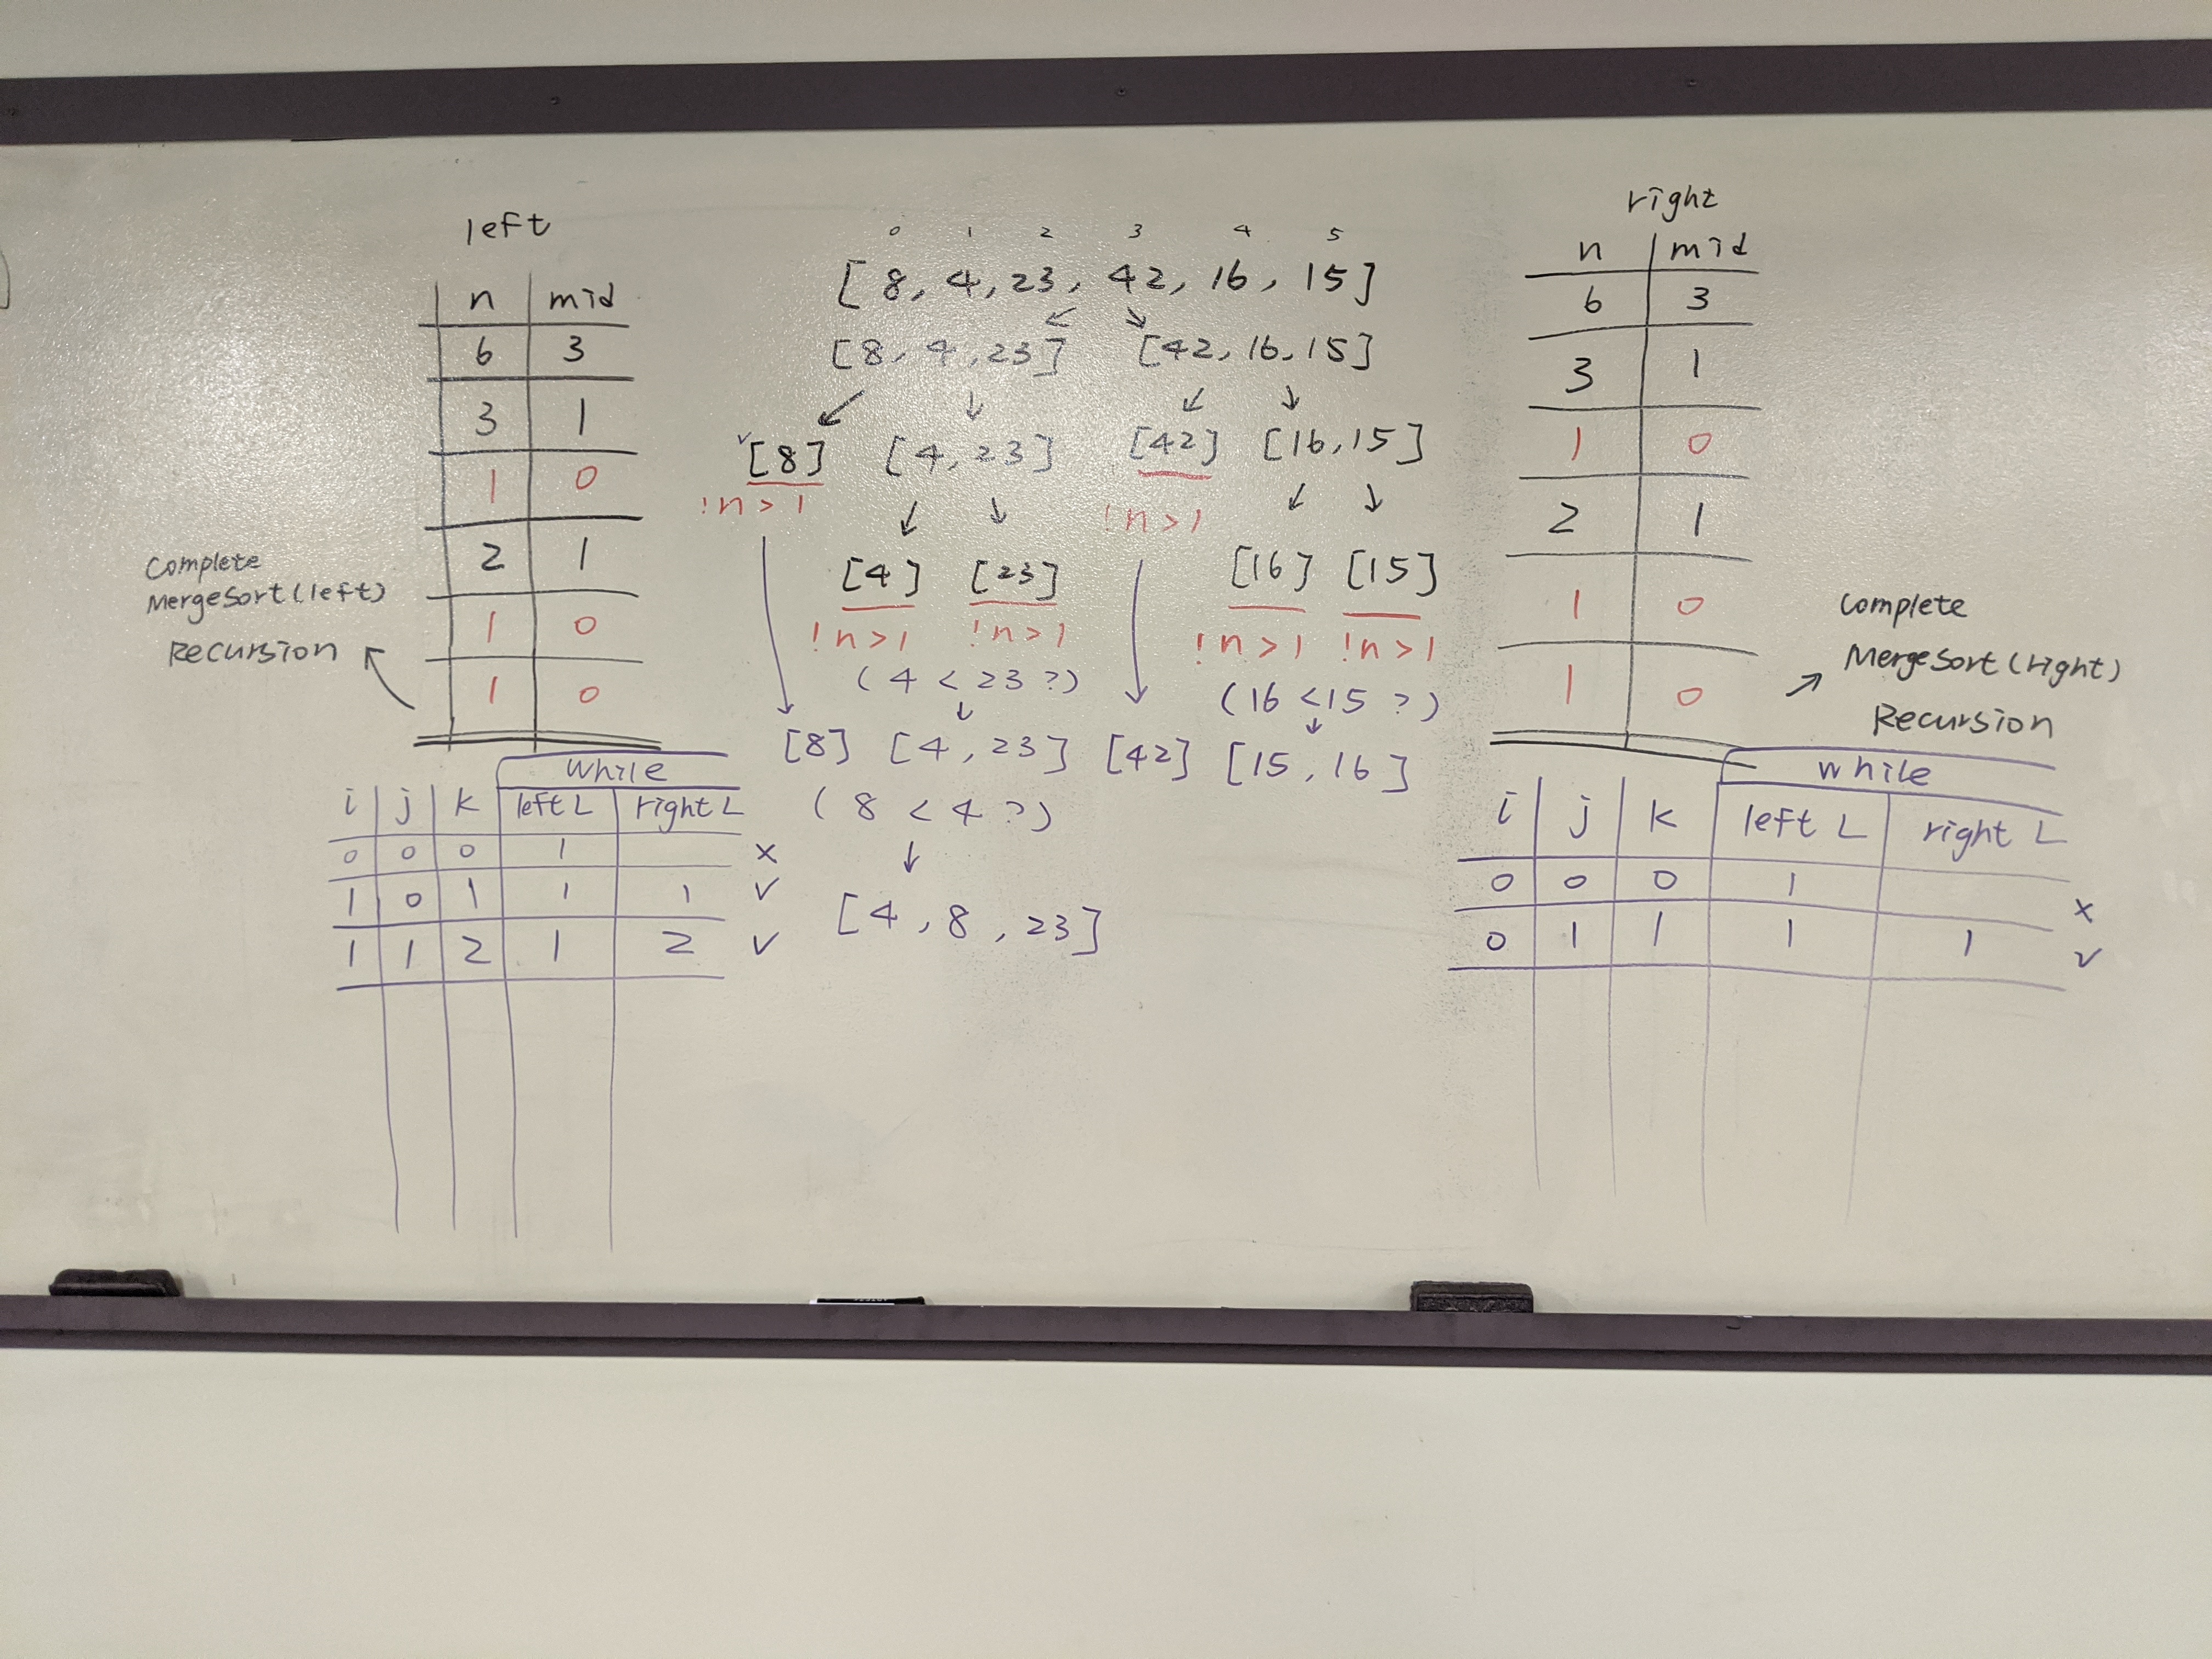 left
n mid
6 3
3 1
1 0
2 1
1 0
1 0
Complete
MergeSort(left)
Recursion
While
i j k left L right L
0 0 0 1 x
1 0 1 1 1 ✓
1 1 2 1 2 ✓
0 1 2 3 4 5
[8, 4, 23, 42, 16, 15]
[8, 4, 23] [42, 16, 15]
✓[8] [4, 23] [42] [16, 15]
!n>1 !n>1
[4] [23] [16] [15]
!n>1 !n>1 !n>1 !n>1
(4 < 23 ?) (16 < 15 ?)
[8] [4, 23] [42] [15, 16]
(8 < 4 ?)
[4, 8, 23]
right
n mid
6 3
3 1
1 0
2 1
1 0
1 0
Complete
MergeSort(right)
Recursion
while
i j k left L right L
0 0 0 1 x
0 1 1 1 1 ✓